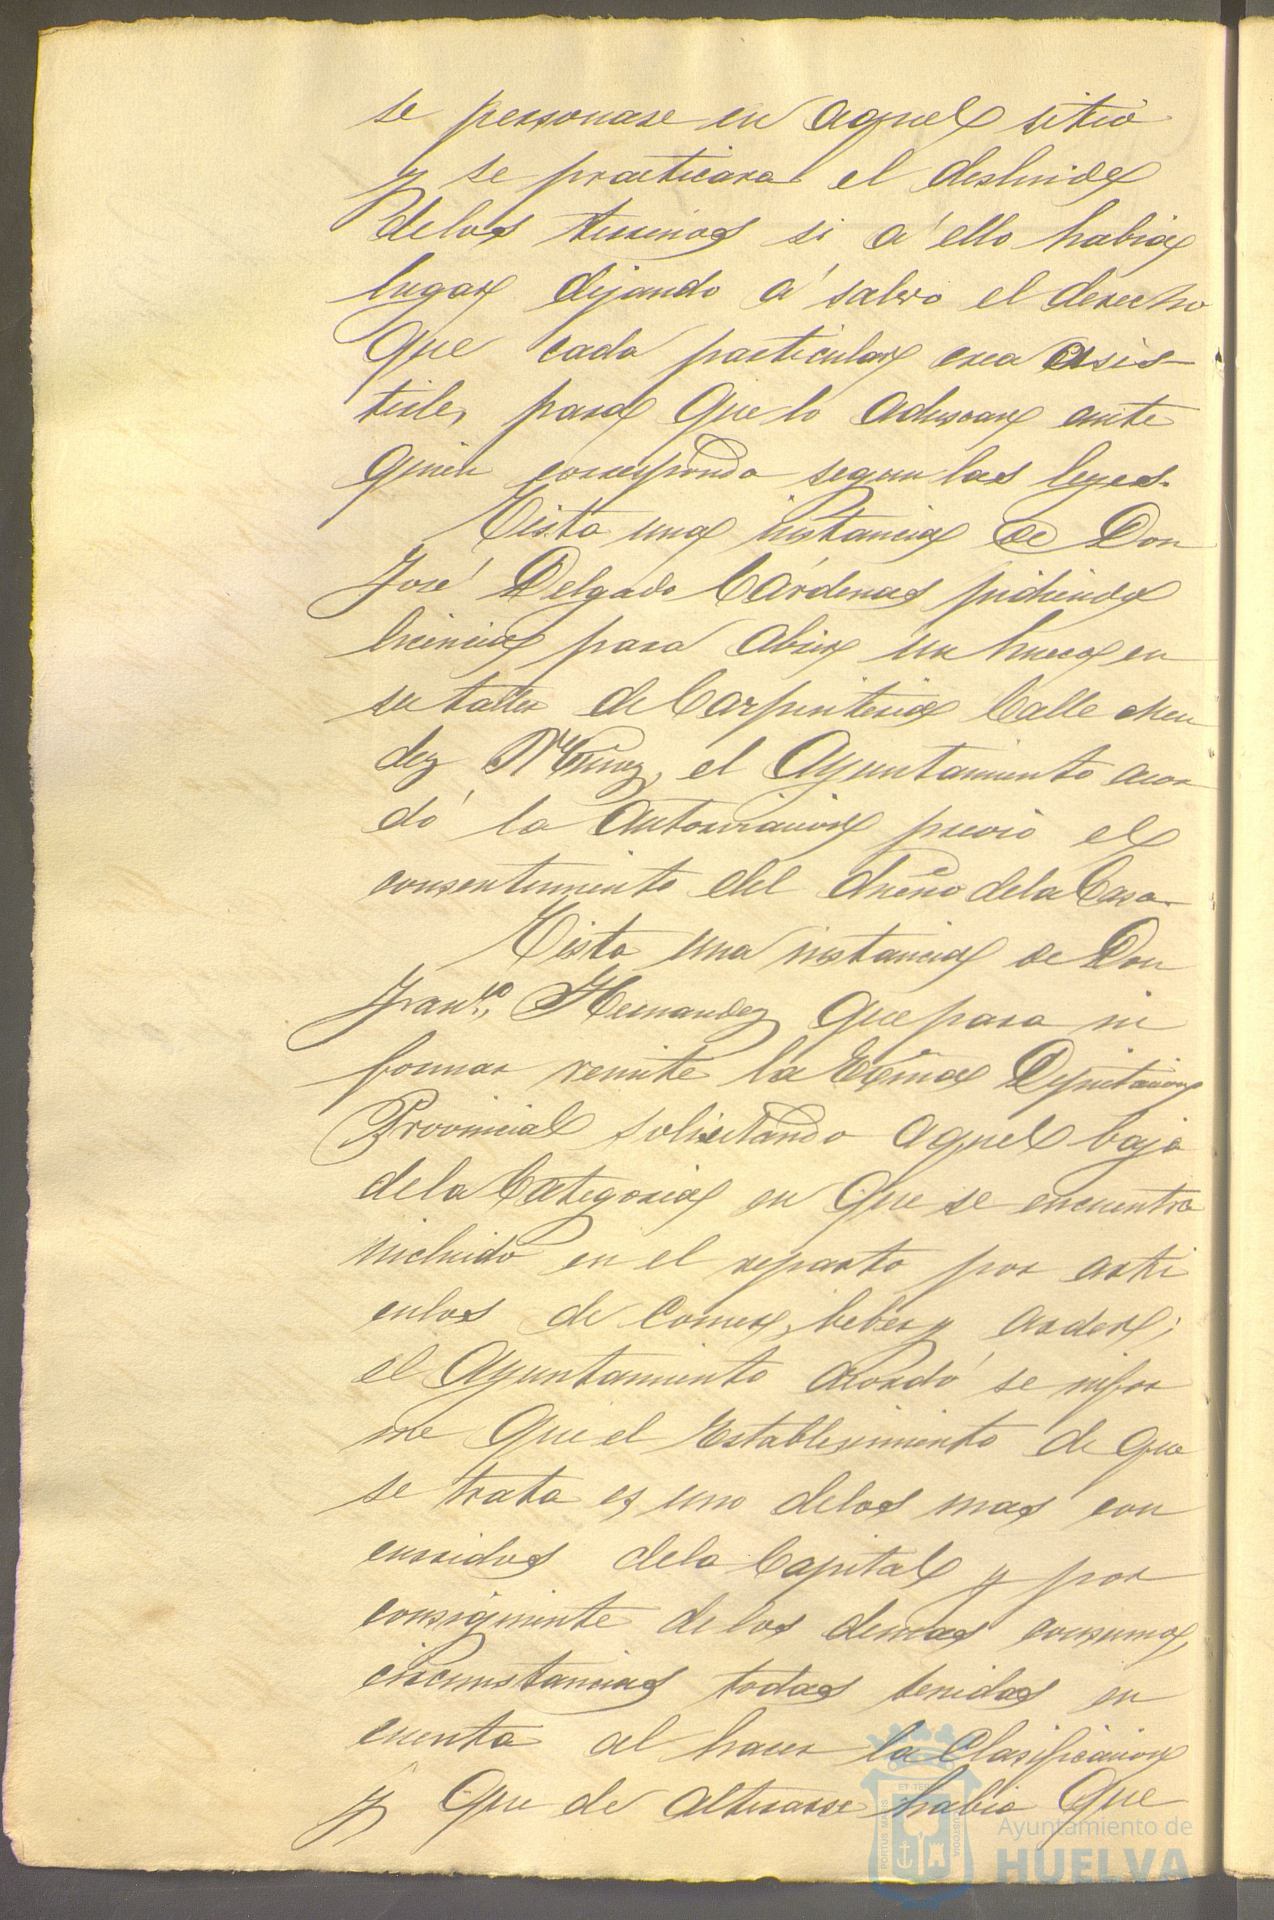 se personase en aquel sitio
y se practicara el deslinde
de los terrenos si á ello habia
lugar dejando á salvo el derecho
que cada particular crea asis-
tirle, para que lo aduzcan ante
quien corresponda segun las leyes.
Vista una instancia de Don
José Delgado Cárdenas pidiendo
licencia para abrir un hueco en
su taller de Carpinteria Calle Men
dez Nuñez, el Ayuntamiento acor
dó la autorizacion previo el
consentimiento del dueño de la Casa.
Vista una instancia de Don
Franco., Hernandez que para in
formar remite la Exma Diputacion
Provincial solicitando aquel baja
de la Categoria en que se encuentra
incluido en el reparto por arti
culos de comer, beber y arder;
el Ayuntamiento acordó se infor
me que el Establecimiento de que
se trata es uno de los mas con
curridos de la Capital y por
consiguiente de los demas consumos,
circunstancias todas tenidas en
cuenta al hacer la Clasificacion
y que de alterarse habia que
PORTUS MARIS ET TERRAE CUSTODIA
Ayuntamiento de
HUELVA